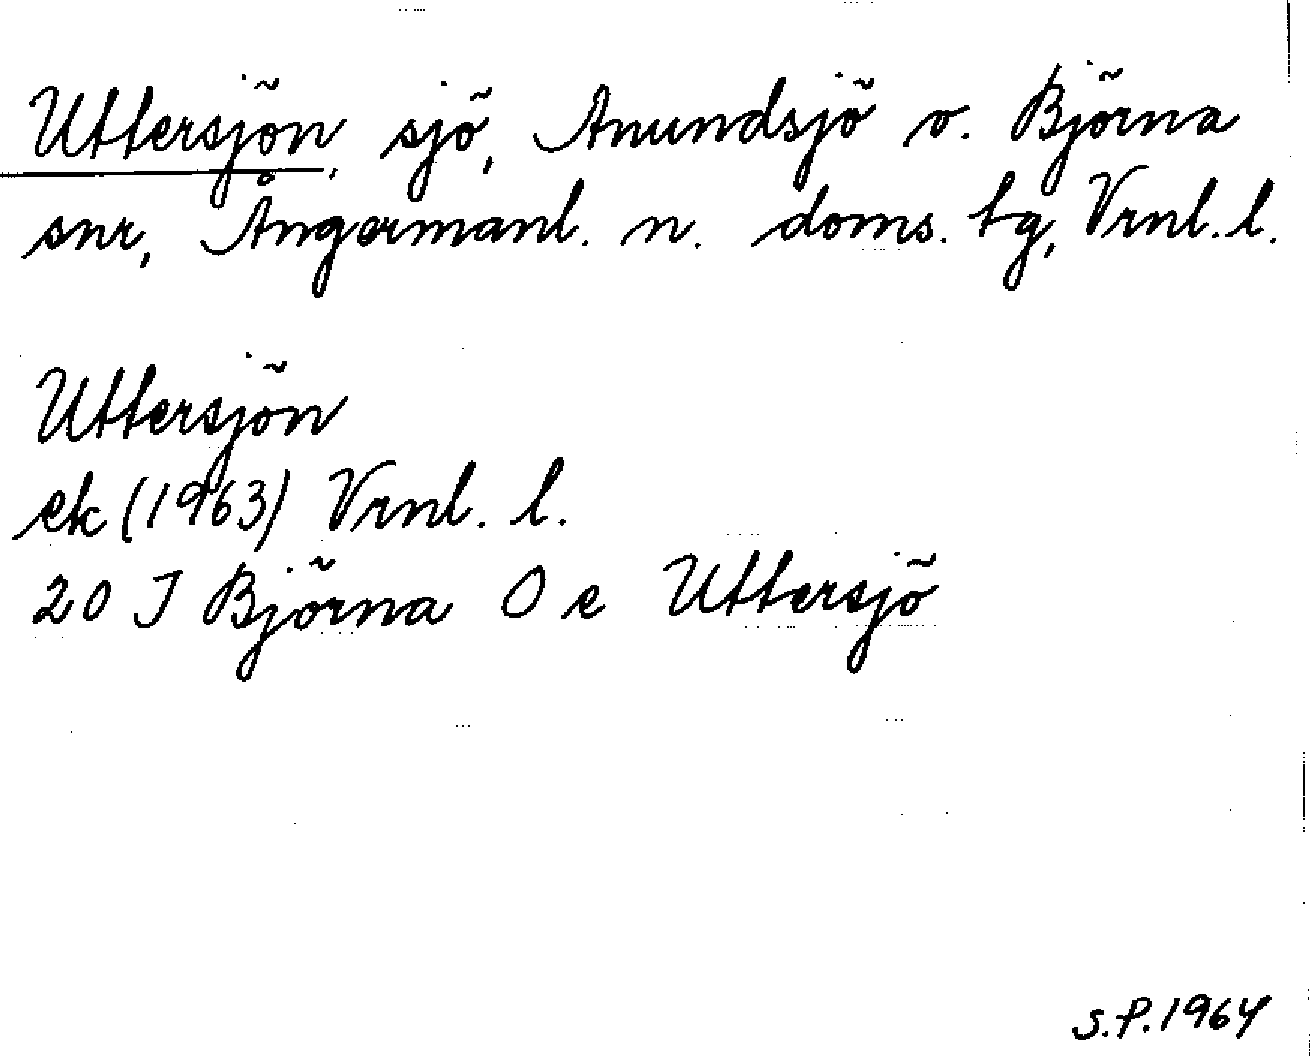 Uttersjön, sjö, Anundsjö o. Björna
snr, Ångermanl. n. doms. tg, Vrnl. l.
Uttersjön
ek (1963) Vrnl. l.
20 J Björna O e Uttersjö
S.P. 1964